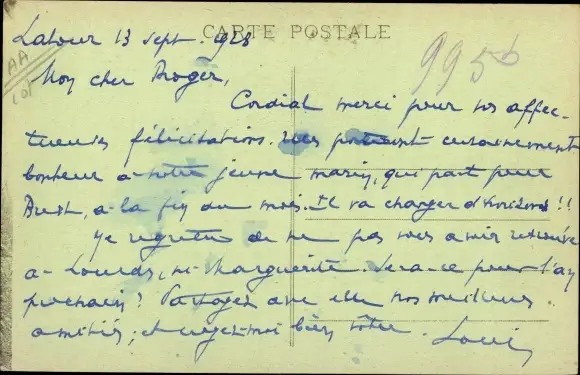 CARTE POSTALE
Latour 13 sept. 1928
995b
AA
Mon cher Roger,
Cordial merci pour vos affec-
tueuses félicitations. Elles porteront certainement
bonheur à notre jeune marin, qui part pour
Brest, à la fin du mois. Il va changer d'horizons !!
Je regrette de ne pas vous avoir retrouvé
à Lourdes, ni Marguerite. Sera-ce pour l'an
prochain ? Partagez avec elle nos meilleures
amitiés ; et croyez-moi bien vôtre. Louis